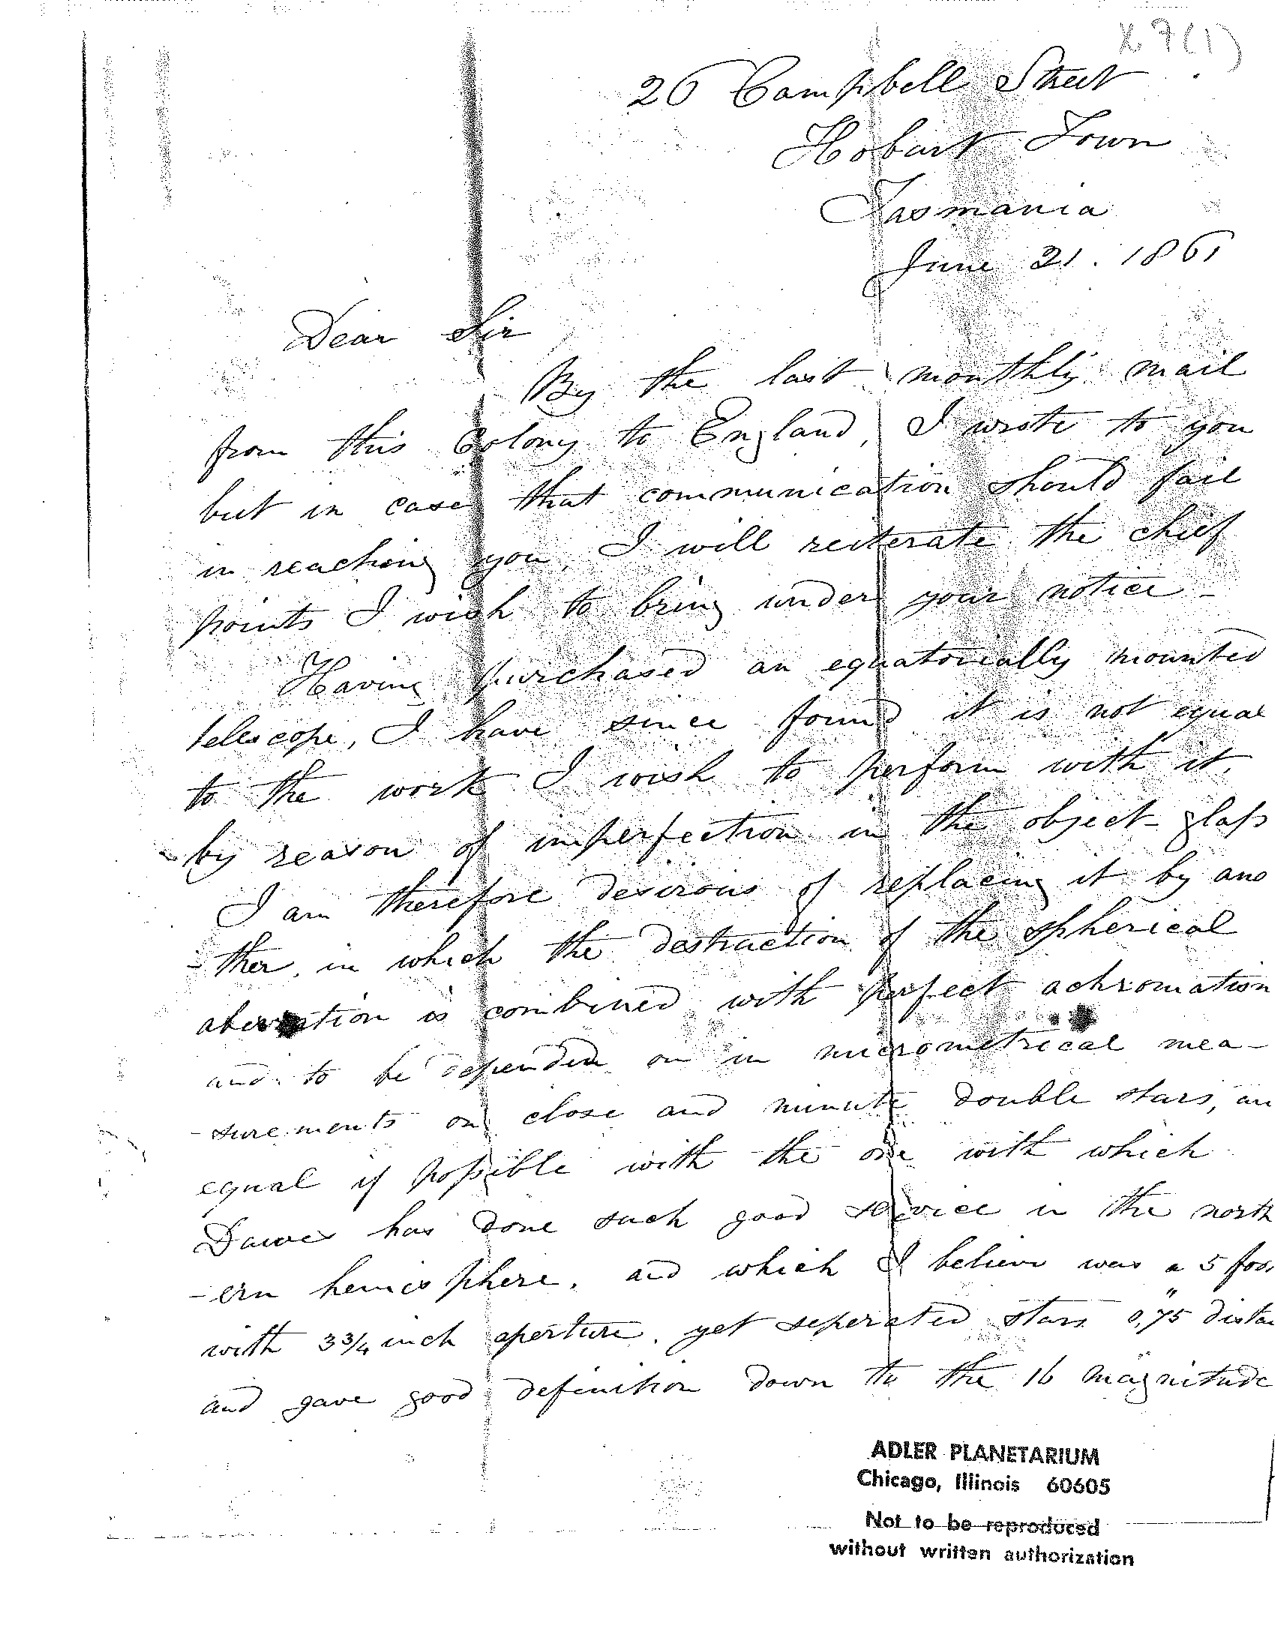 X 7(1)
26 Campbell Street
Hobart Town
Tasmania
June 21. 1861
Dear Sir
By the last monthly mail
from this Colony to England, I wrote to you
but in case that communication should fail
in reaching you, I will reiterate the chief
points I wish to bring under your notice -
Having purchased an equatorially mounted
telescope, I have since found it is not equal
to the work I wish to perform with it,
by reason of imperfection in the object-glass
I am therefore desirous of replacing it by ano
-ther, in which the destruction of the spherical
aberration is combined with perfect achromation
and to be depended on in micrometrical mea-
-surements on close and minute double stars, an
equal if possible with the one with which
Dawes has done such good service in the north
-ern hemisphere, and which I believe was a 5 foo
with 3¾ inch aperture, yet seperated stars 0."75 dista
and gave good definition down to the 16 magnitude
ADLER PLANETARIUM
Chicago, Illinois 60605
Not to be reproduced
without written authorization